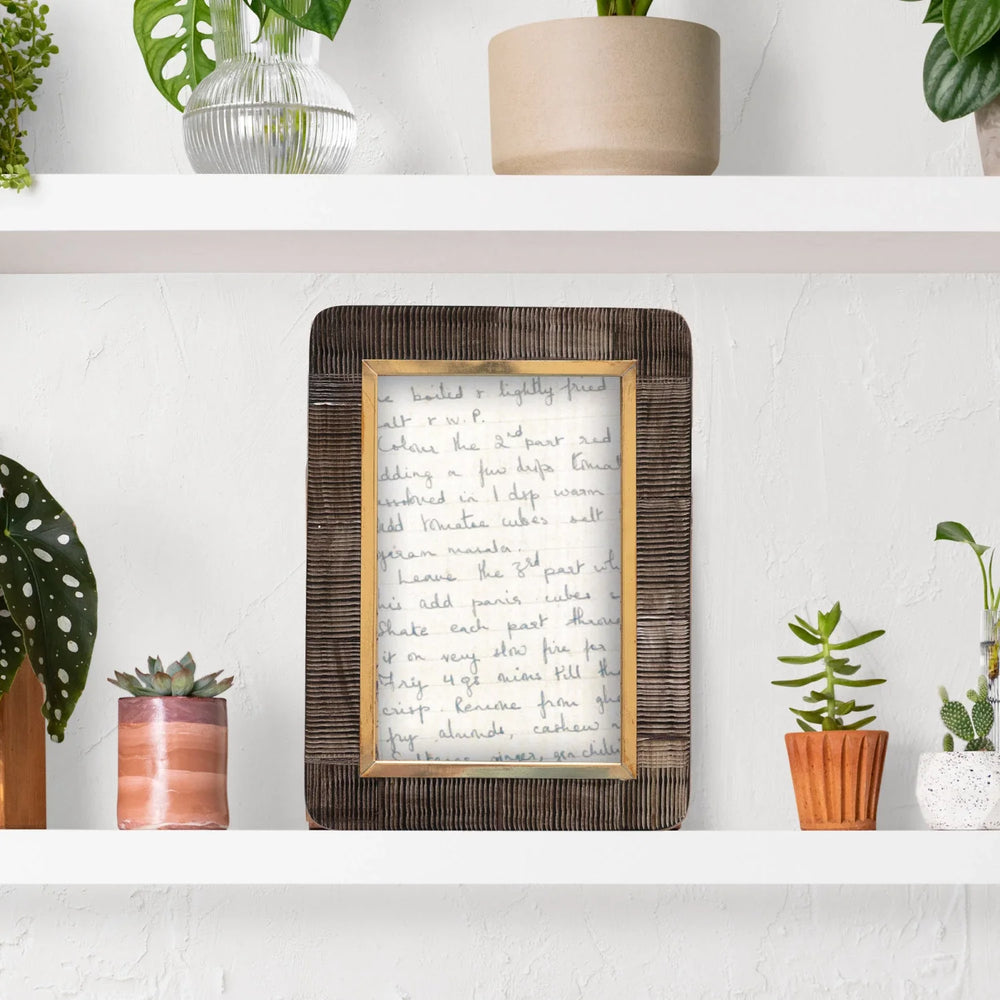 boiled & lightly fried
alt & W.P.
Colour the 2nd part red
dding a few drops tomat
in 1 dsp warm
add tomatoe cubes salt
garam masala.
Leave the 3rd part wh
add panir cubes
Shake each part throu
it on very slow fire for
Frig 4 gs mins till the
crisp. Remove from ghe
fry almonds, cashew
ginger, grn chilli